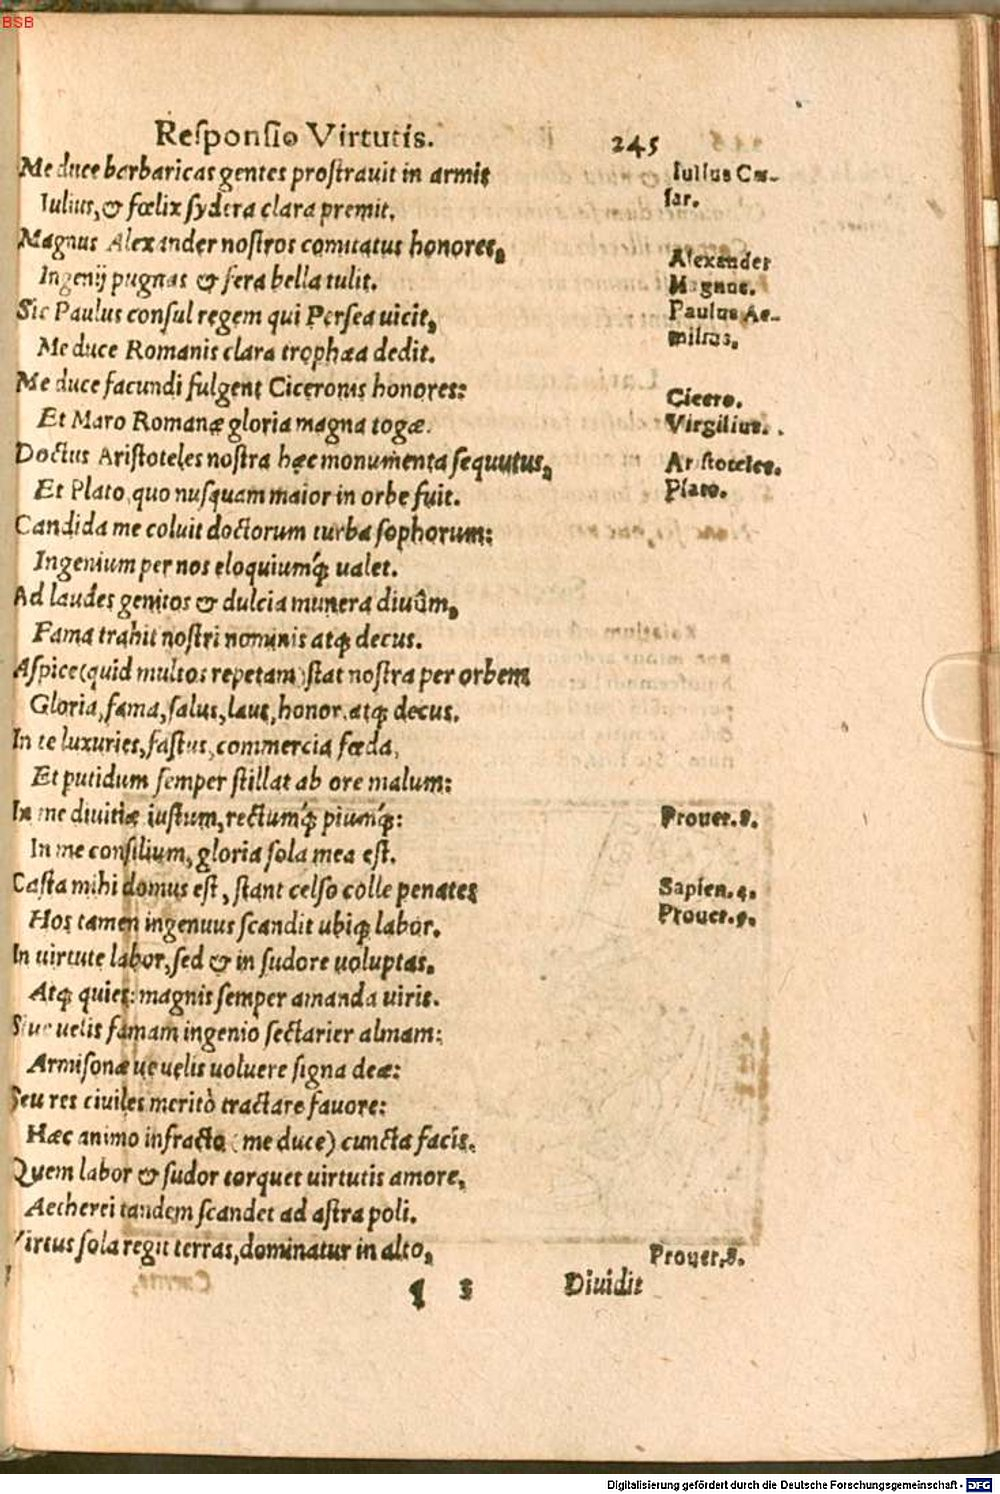 BSB
Reſponſio Virtutis. 245
Me duce barbaricas gentes proſtrauit in armis Iulius Cæ-
Iulius, & fœlix ſydera clara premit. ſar.
Magnus Alexander noſtros comitatus honores, Alexander
Ingenij pugnas & fera bella tulit. Magnus.
Sic Paulus conſul regem qui Perſea uicit, Paulus Ae-
Me duce Romanis clara trophæa dedit. milius.
Me duce facundi fulgent Ciceronis honores: Cicero.
Et Maro Romanæ gloria magna togæ. Virgilius.
Doctus Ariſtoteles noſtra hæc monumenta ſequutus, Ariſtoteles.
Et Plato, quo nuſquam maior in orbe fuit. Plato.
Candida me coluit doctorum turba ſophorum:
Ingenium per nos eloquiumq́; ualet.
Ad laudes genitos & dulcia munera diuûm,
Fama trahit noſtri nominis atq; decus.
Aſpice (quid multos repetam) ſtat noſtra per orbem
Gloria, fama, ſalus, laus, honor, atq; decus.
In te luxuries, faſtus, commercia fœda,
Et putidum ſemper ſtillat ab ore malum:
In me diuitiæ iuſtum, rectumq́; piumq́;: Prouer. 8.
In me conſilium, gloria ſola mea eſt.
Caſta mihi domus eſt, ſtant celſo colle penates Sapien. 4.
Hos tamen ingenuus ſcandit ubiq; labor. Prouer. 9.
In uirtute labor, ſed & in ſudore uoluptas.
Atq; quies: magnis ſemper amanda uiris.
Siue uelis famam ingenio ſectarier almam:
Armiſonæ ue uelis uoluere ſigna deæ:
Seu res ciuiles meritò tractare fauore:
Hæc animo infracto (me duce) cuncta facis.
Quem labor & ſudor torquet uirtutis amore,
Aetherei tandem ſcandet ad aſtra poli.
Virtus ſola regit terras, dominatur in alto, Prouer. 8.
q 3 Diuidit
Digitalisierung gefördert durch die Deutsche Forschungsgemeinschaft - DFG